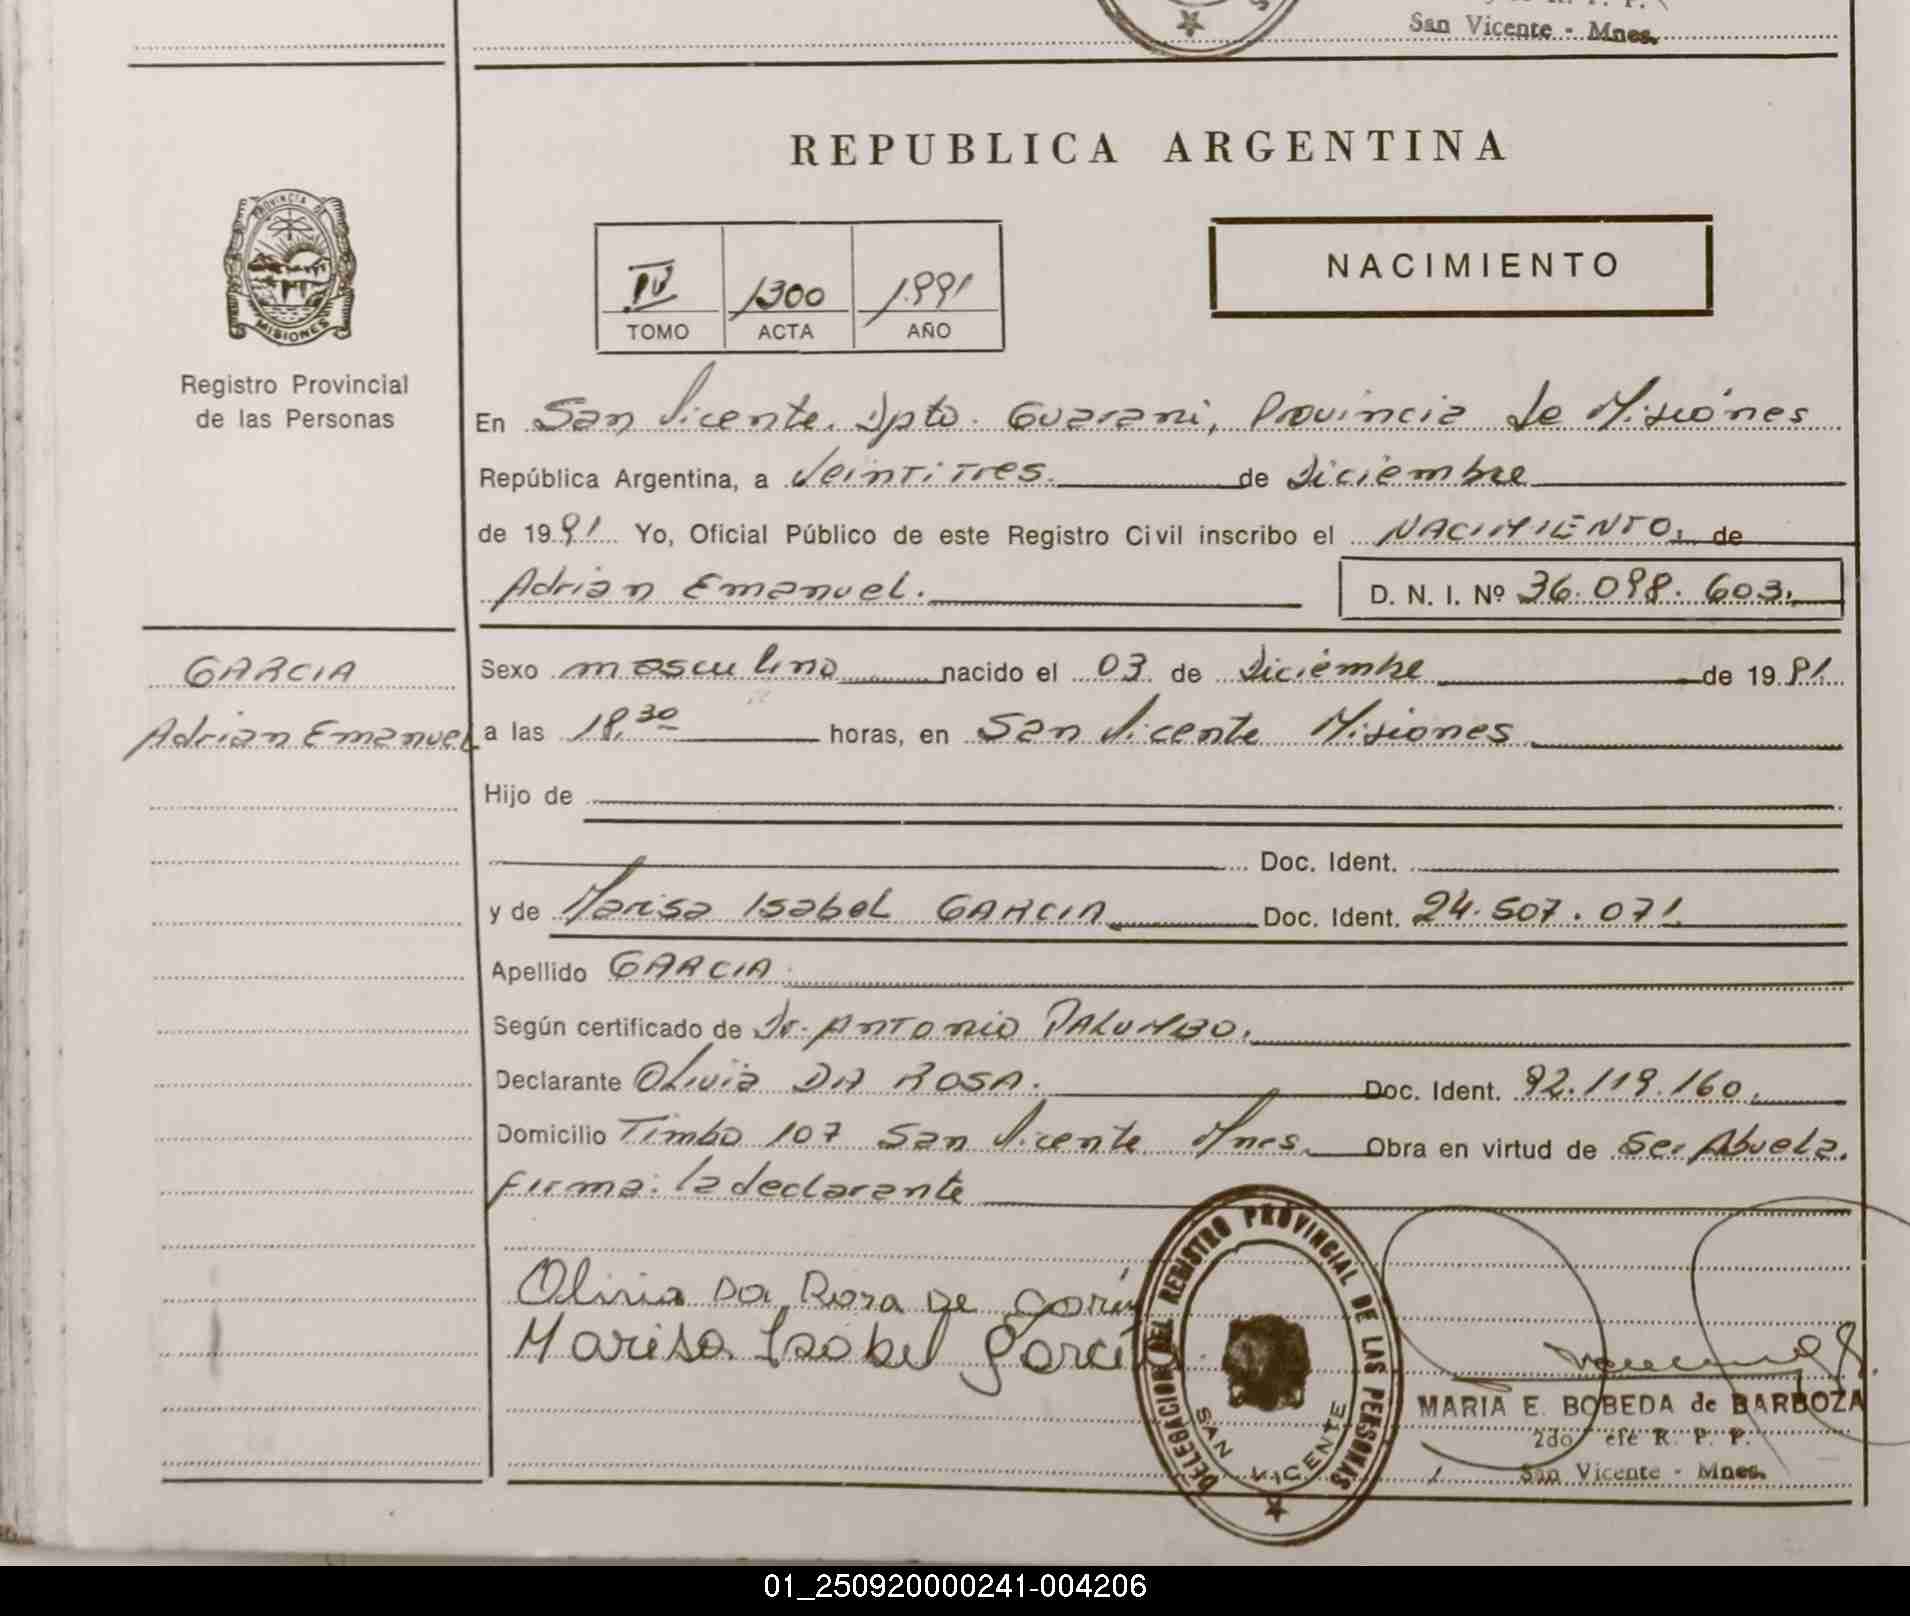 San Vicente - Mnes.
REPUBLICA ARGENTINA
PROVINCIA DE
MISIONES
Registro Provincial
de las Personas
IV 1300 1991
TOMO ACTA AÑO
NACIMIENTO
En San Vicente. Dpto. Guarani, Provincia de Misiones
República Argentina, a Veintitres. de Diciembre
de 1991 Yo, Oficial Público de este Registro Civil inscribo el NACIMIENTO: de
Adrian Emanuel. D. N. I. Nº 36.098.603.
GARCIA
Adrian Emanuel
Sexo masculino nacido el 03 de Diciembre de 1991.
a las 18,30 horas, en San Vicente Misiones
Hijo de
Doc. Ident.
y de Marisa Isabel GARCIA Doc. Ident. 24.507.071.
Apellido GARCIA.
Según certificado de Dr. Antonio PALUMBO.
Declarante Olivia DA ROSA. Doc. Ident. 92.119.160.
Domicilio Timbo 107 San Vicente Mnes. Obra en virtud de Ser Abuela.
firma: la declarante
Olivia Da Rosa De
Marisa Isabel Garcia
DELEGACION DEL REGISTRO PROVINCIAL DE LAS PERSONAS
SAN VICENTE
MARIA E. BOBEDA de BARBOZA
2do efe R. P. P.
San Vicente - Mnes.
01_250920000241-004206